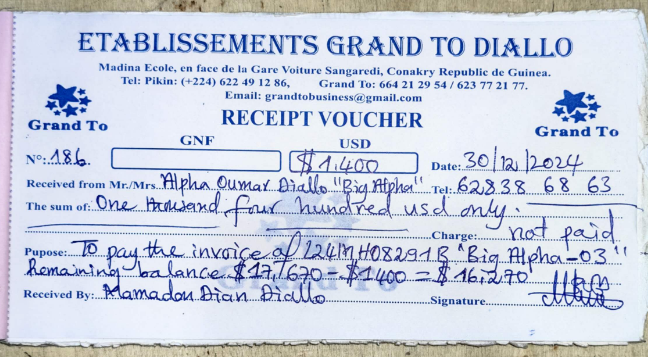 ETABLISSEMENTS GRAND TO DIALLO
Madina Ecole, en face de la Gare Voiture Sangaredi, Conakry Republic de Guinea.
Tel: Pikin: (+224) 622 49 12 86, Grand To: 664 21 29 54 / 623 77 21 77.
Email: grandtobusiness@gmail.com
Grand To
RECEIPT VOUCHER
Grand To
GNF USD
N°: 186. $1,400 Date: 30/12/2024
Received from Mr./Mrs. Alpha Oumar Diallo "Big Alpha" Tel: 62838 68 63
The sum of: One thousand four hundred usd only.
Charge: not paid
Pupose: To pay the invoice of "Big Alpha-03"
Remaining balance $17,670 - $1400 = $16,270
Received By: Mamadou Dian Diallo Signature